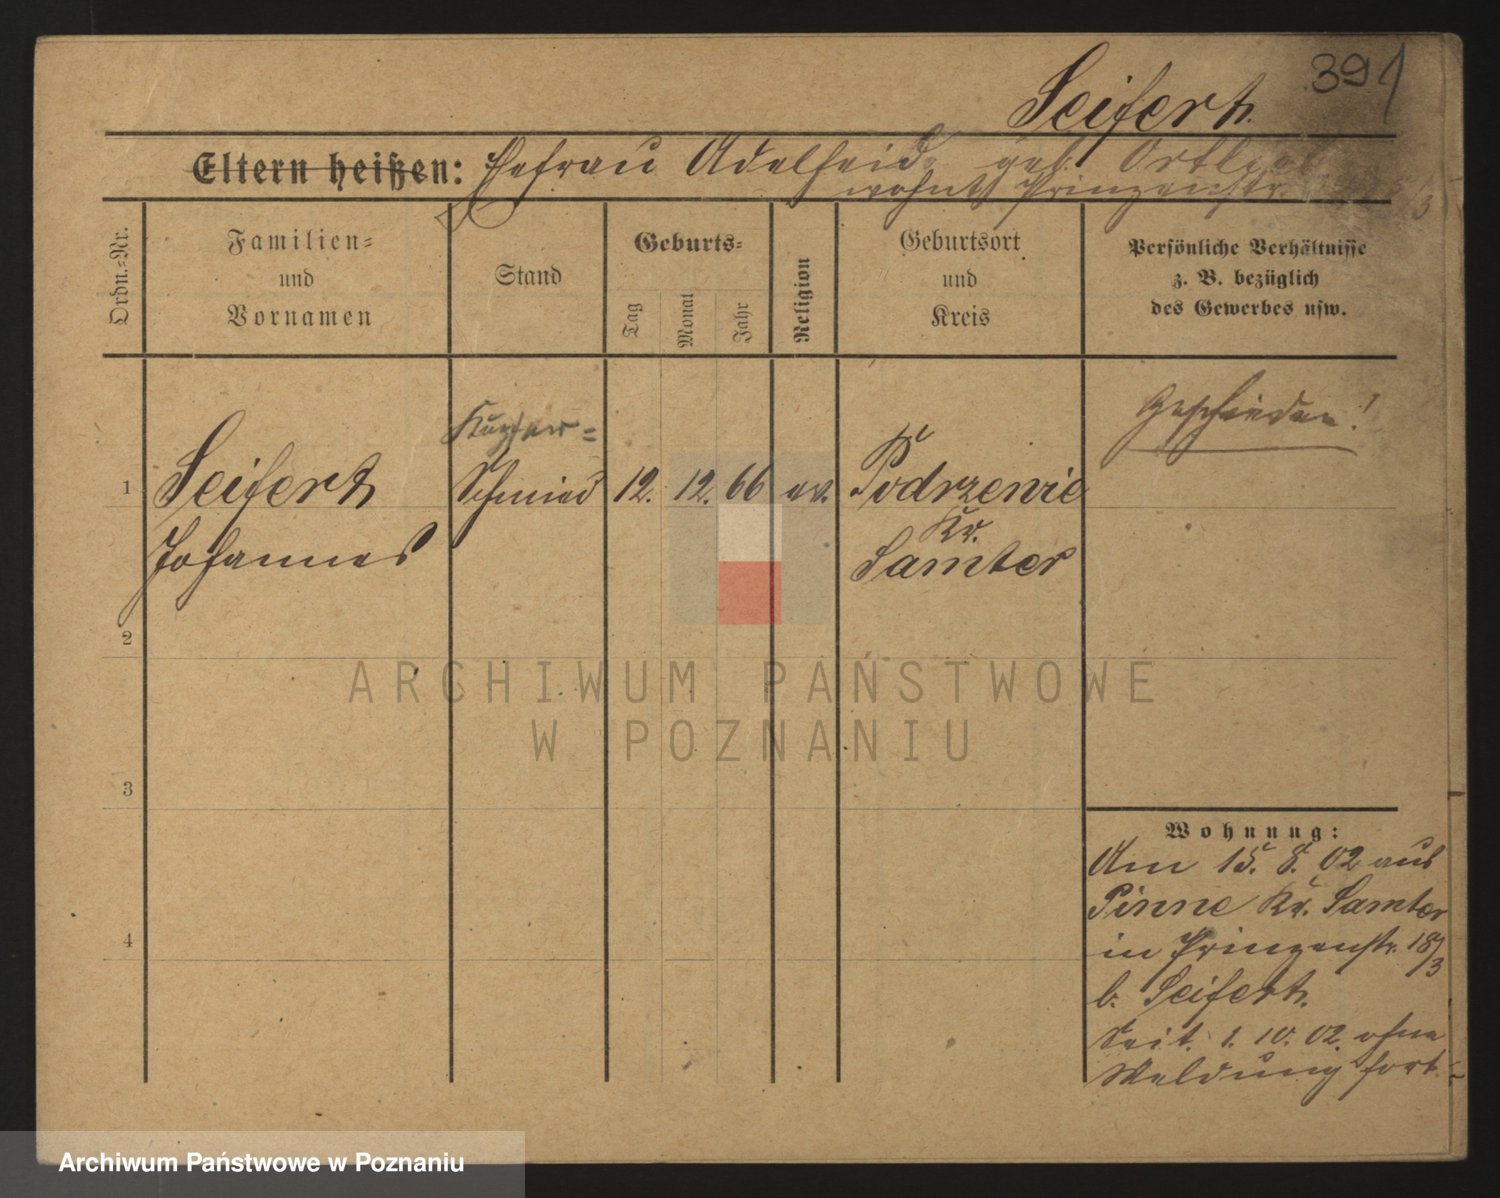 391
Seifert.
Eltern heißen: Ehefrau Adelheid geb.
wohnt Prinzenstr.
Ordn.=Nr.
Familien=
und
Vornamen
Stand
Geburts=
Tag
Monat
Jahr
Religion
Geburtsort
und
Kreis
Persönliche Verhältnisse
z. B. bezüglich
des Gewerbes usw.
Geschieden!
Kupfer=
1 Seifert Schmied 12. 12. 66 ev. Podrzewie
Kr.
Johannes Samter
2
3
4
Wohnung:
Am 15. 8. 02 aus
Pinne Kr. Samter
in Prinzenstr. 18/3
b. Seifert.
Seit 1. 10. 02. ohne
Meldung fort.
ARCHIWUM PAŃSTWOWE
W POZNANIU
Archiwum Państwowe w Poznaniu